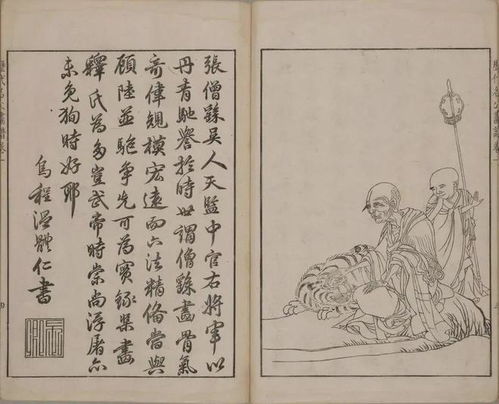 張僧繇吳人天監中官右將軍以
丹青馳譽於時世謂僧繇畫骨氣
奇偉規模宏遠而六法精備當與
顧陸並馳爭先可為實錄渠畫
釋氏為多豈武帝時崇尚浮屠亦
未免狥時好耶
烏程溫體仁書